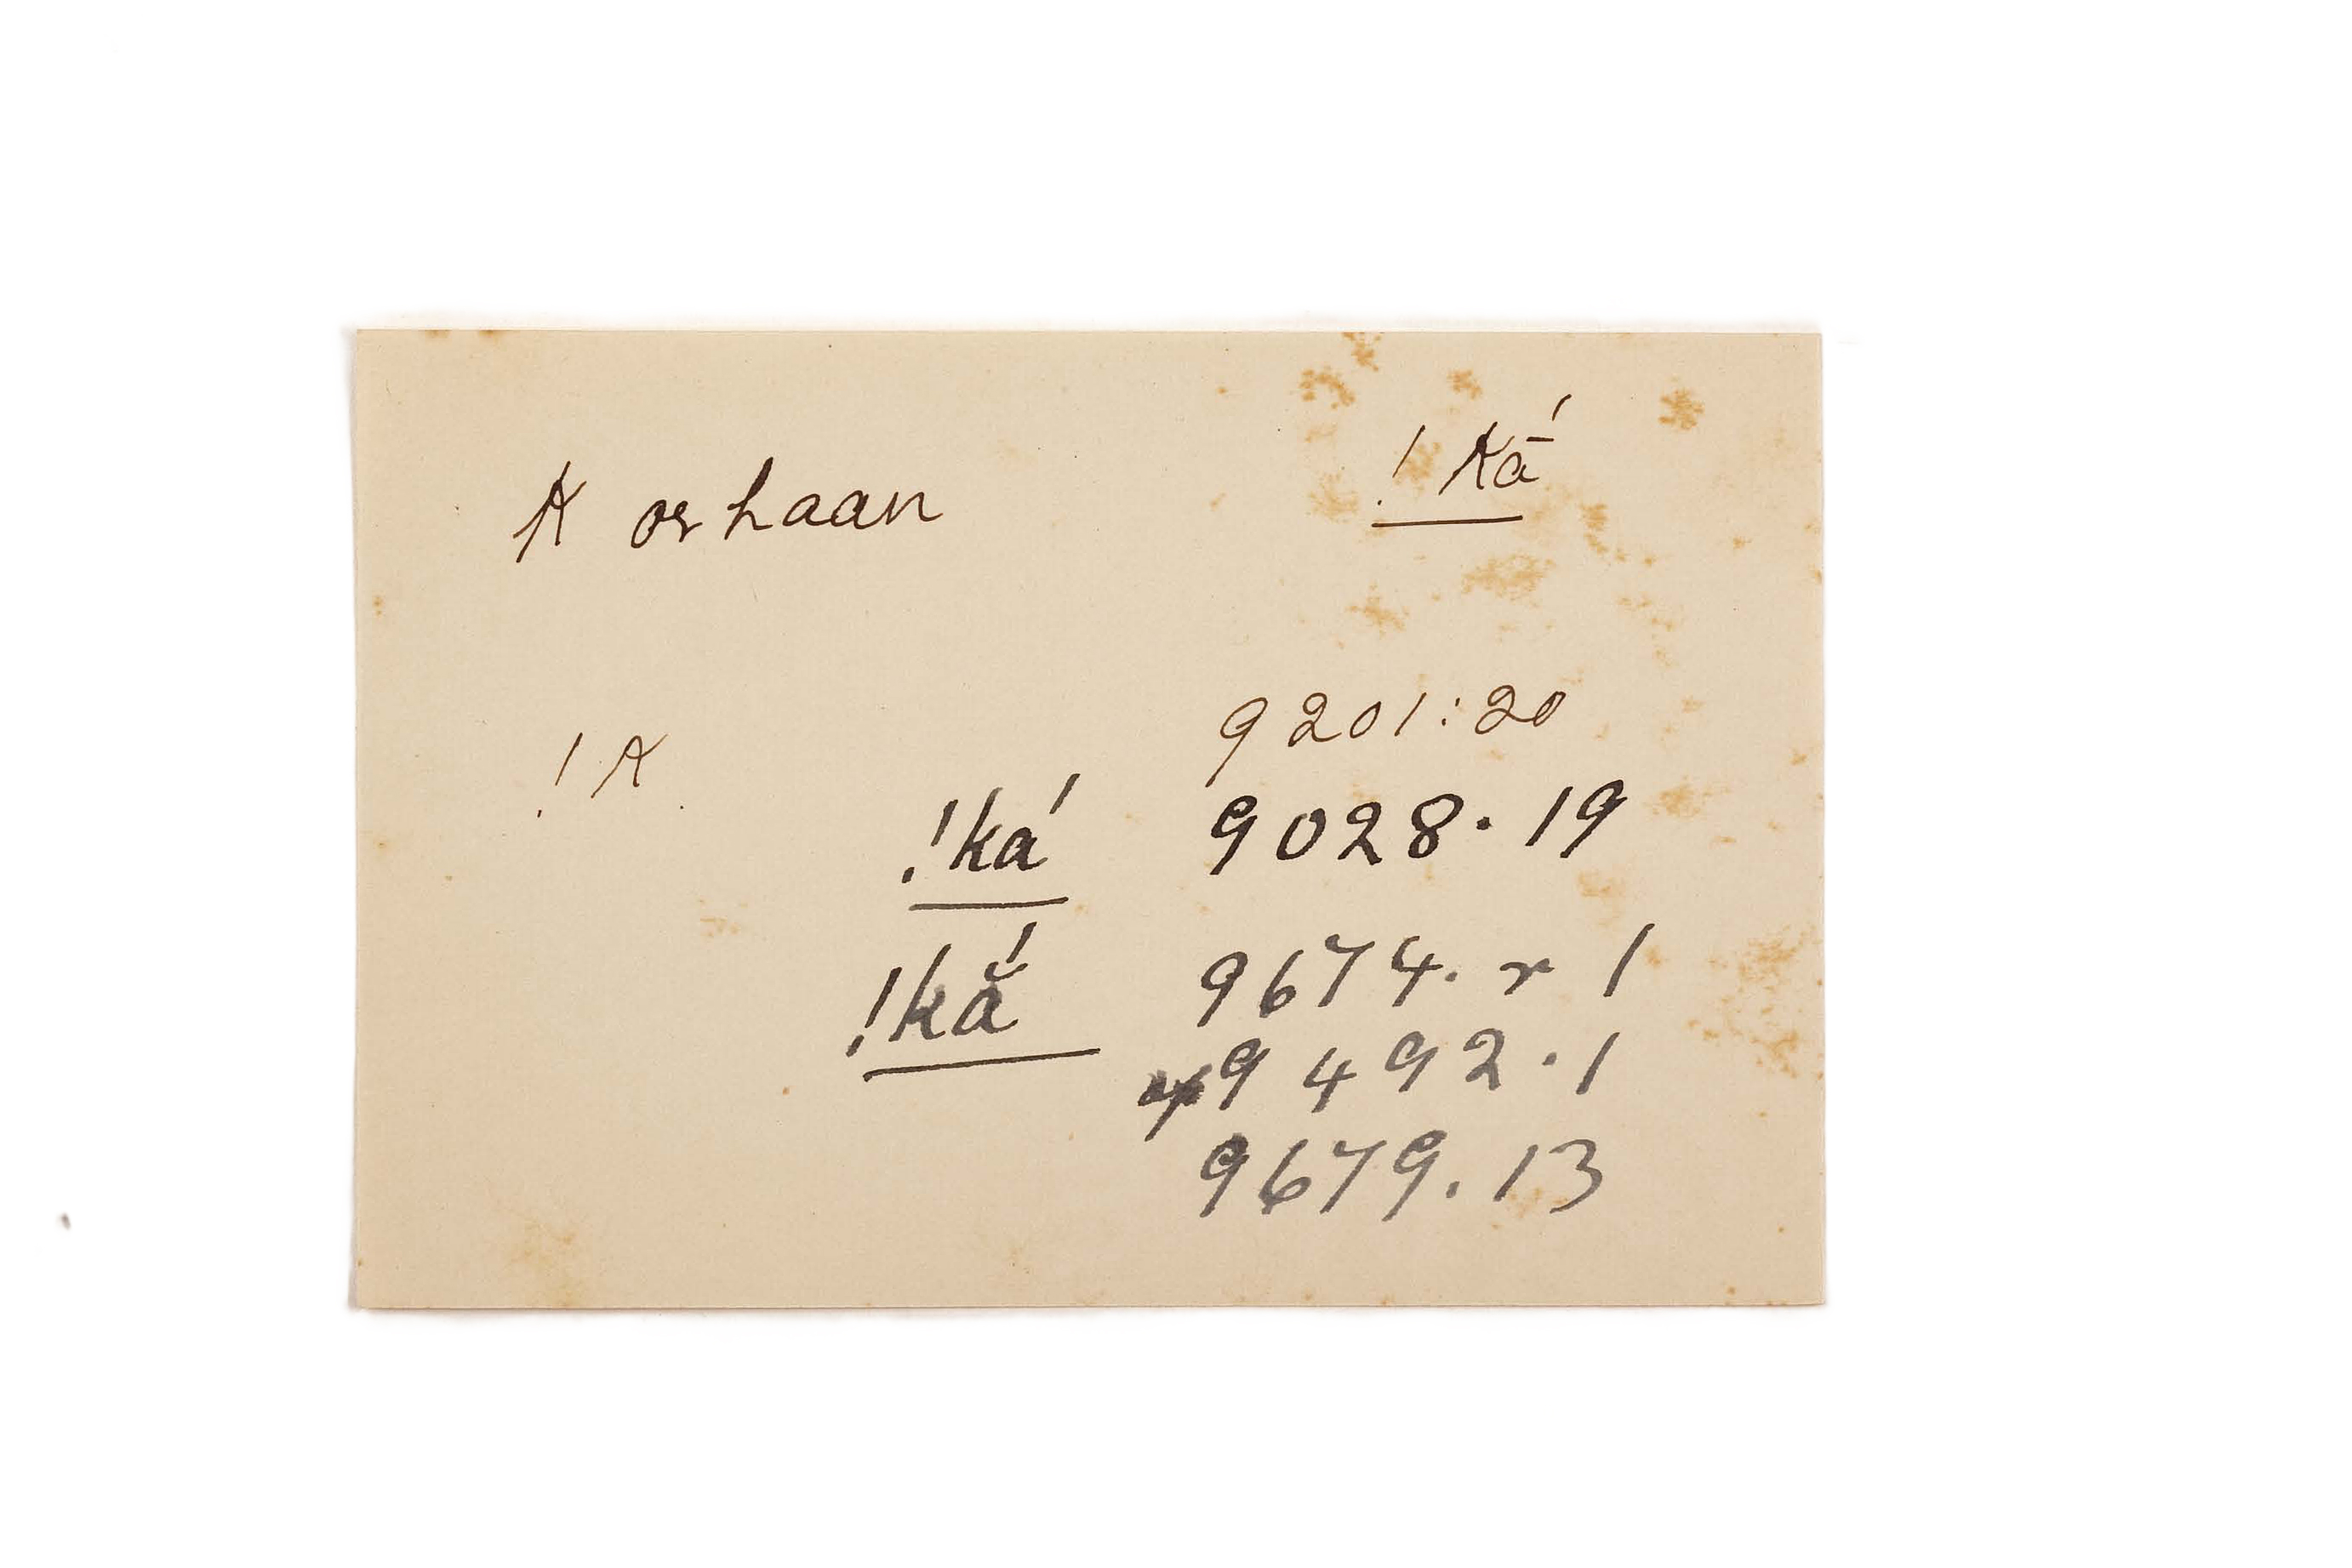 Korhaan !kā́
9201:20
!k.
!ká 9028.19
!kắ 9674. r 1
9492.1
9679.13